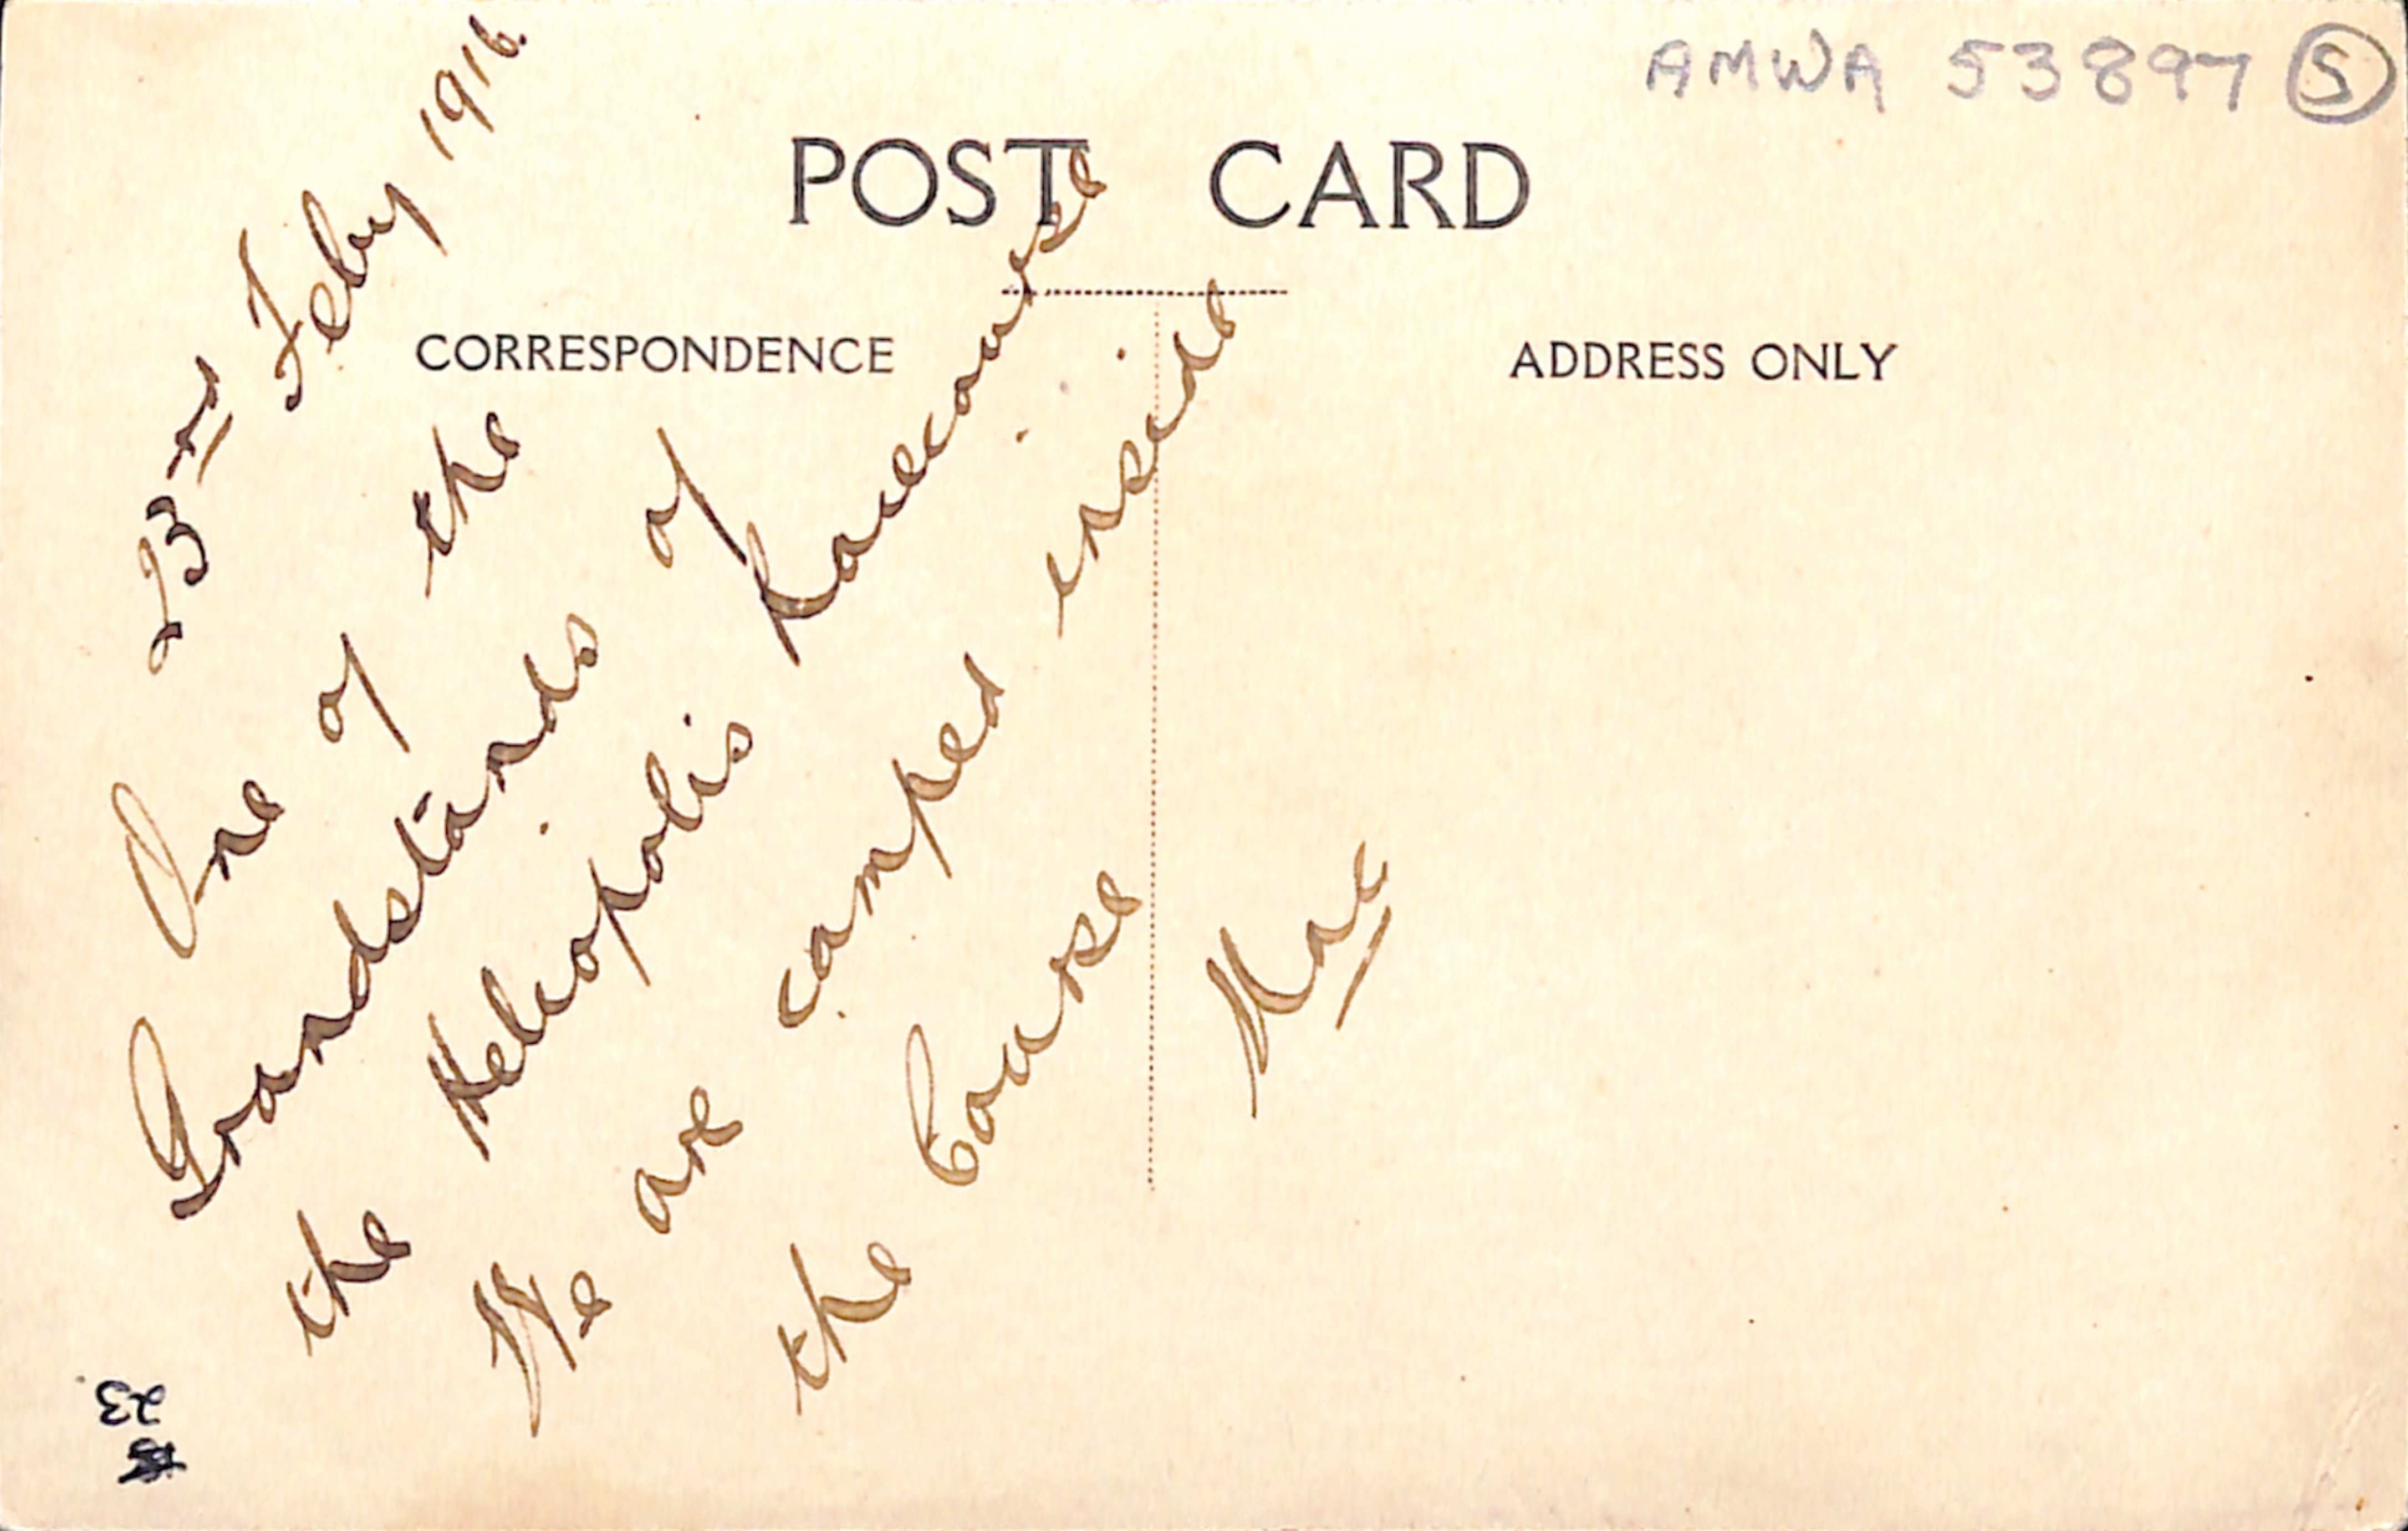 AMWA 53897 S
POST CARD
CORRESPONDENCE
ADDRESS ONLY
23rd Feby 1916.
One of the
Grandstands of
the Heliopolis Racecourse
We are camped inside
the Course
Mac
23